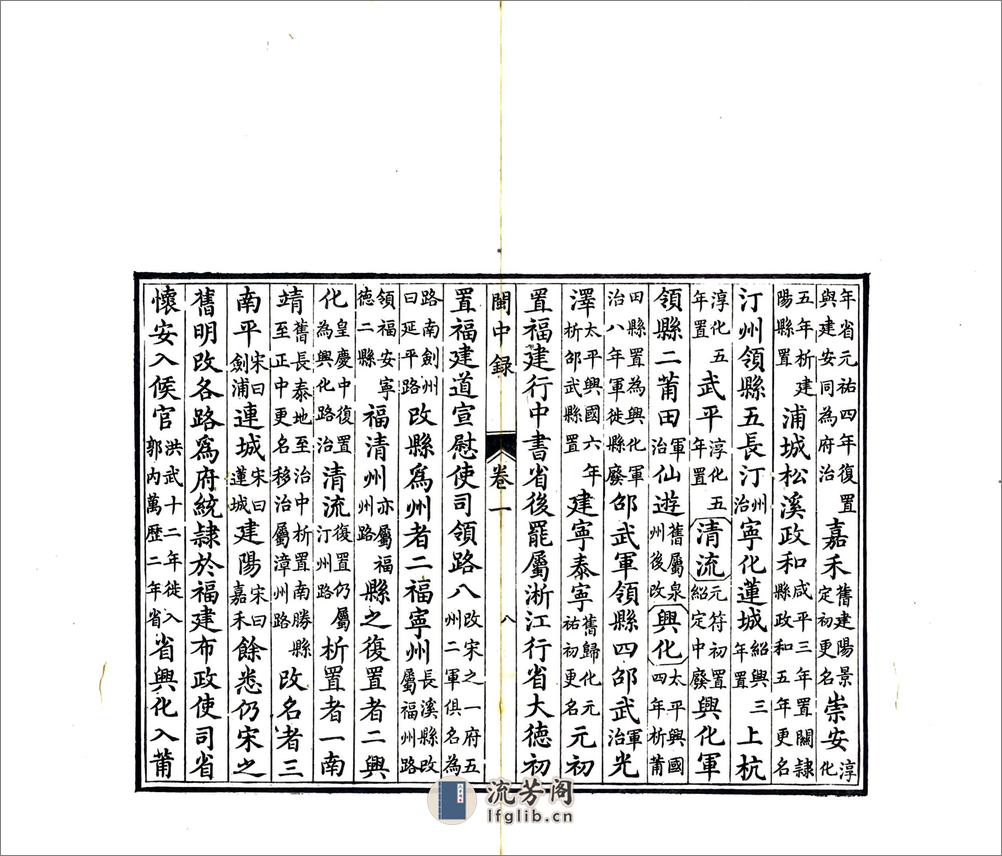 年省元祐四年復置與建安同為府治嘉禾舊建陽景定初更名崇安淳化
五年析建陽縣置浦城松溪政和咸平三年置關隸縣政和五年更名
汀州領縣五長汀州治寧化蓮城紹興三年置上杭
淳化五年置武平淳化五年置清流元符初置紹定中廢興化軍
領縣二莆田軍治仙遊舊屬泉州後改興化太平興國四年析莆
田縣置為興化軍治八年軍徙縣廢邵武軍領縣四邵武軍治光
澤太平興國六年析邵武縣置建寧泰寧舊歸化元祐初更名元初
置福建行中書省後罷屬淅江行省大德初
閩中録 卷一 八
置福建道宣慰使司領路八改宋之一府五州二軍俱名為
路南劍州曰延平路改縣爲州者二福寧州長溪縣改屬福州路
領福安寧德二縣福清州亦屬福州路縣之復置者二興
化皇慶中復置為興化路治清流復置仍屬汀州路析置者一南
靖舊長泰地至治中析置南勝縣至正中更名移治屬漳州路改名者三
南平宋曰劍浦連城宋曰蓮城建陽宋曰嘉禾餘悉仍宋之
舊明改各路爲府統隸於福建布政使司省
懷安入侯官洪武十二年徙入郭內萬歷二年省省興化入莆
流芳阁
lfglib.cn